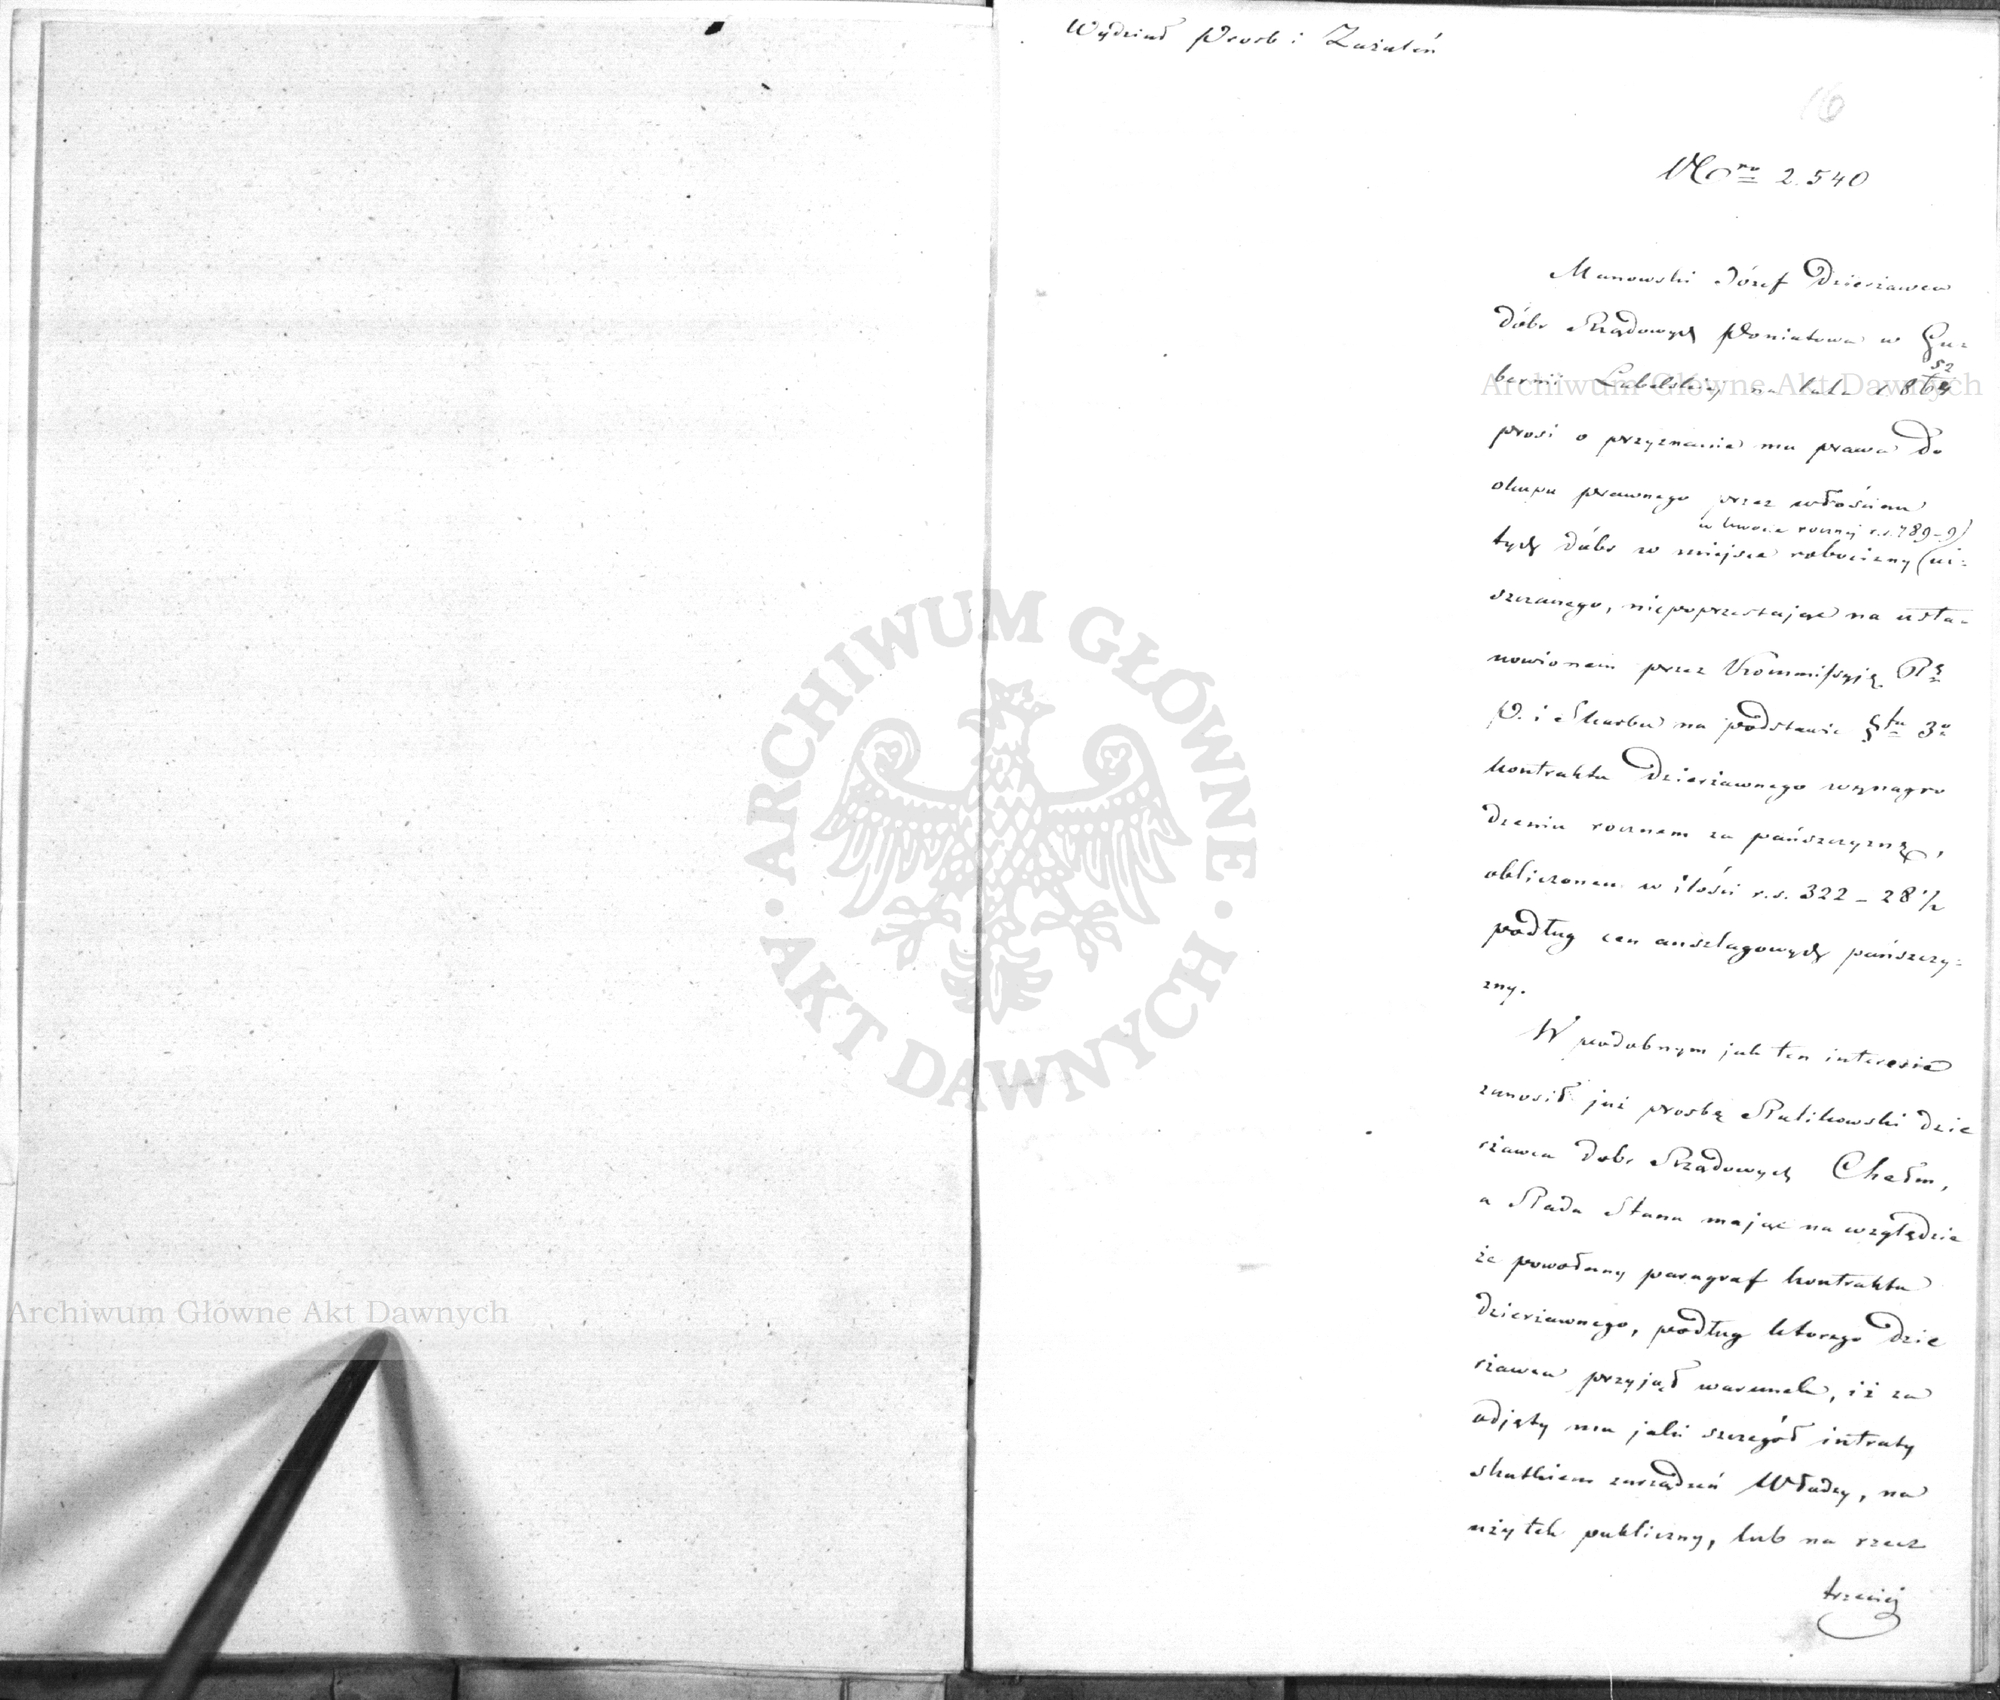 Wydział Prosb i Zażaleń
16
Nro 2.540
Manowski Józef Dzierżawca
dóbr Rządowych Poniatowa w Gu-
bernii Lubelskiej na lata 18 52/64
prosi o przyznanie mu prawa do
okupu prawnego przez włościan
w kwocie rocznej r.s. 789-9)
tych dóbr w miejsce robocizny (ui-
szczanego, niepoprzestając na usta-
nowionem przez Kommissyję Rz
P. i Skarbu na podstawie §fu 3o
kontraktu dzierżawnego wynagro
dzeniu rocznem za pańszczyznę,
obliczonem w ilości r.s. 322-28½
podług cen anszlagowych pańszczy-
zny.
W podobnym jak ten interesie
zanosił już prosbę Rulikowski dzie
rżawca dobr Rządowych Chełm,
a Rada Stanu mając na względzie
że powołany paragraf kontraktu
dzierżawnego, podług ktorego dzie
rżawca przyjął warunek, iż za
odjęty mu jaki szczegół intraty
skutkiem zarządzeń Władzy, na
użytek publiczny, lub na rzecz
trzeciej
Archiwum Główne Akt Dawnych
Archiwum Główne Akt Dawnych
ARCHIWUM GŁÓWNE
AKT DAWNYCH